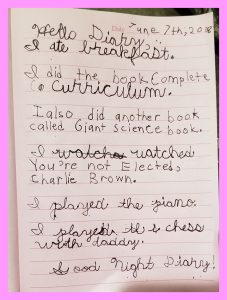 June 7th, 2018
Hello Diary,
I ate breakfast.
I did the book Complete
Curriculum.
I also did another book
called Giant Science book.
I watched
You're not Elected,
Charlie Brown.
I played the piano.
I played chess
with daddy.
Good Night Diary!